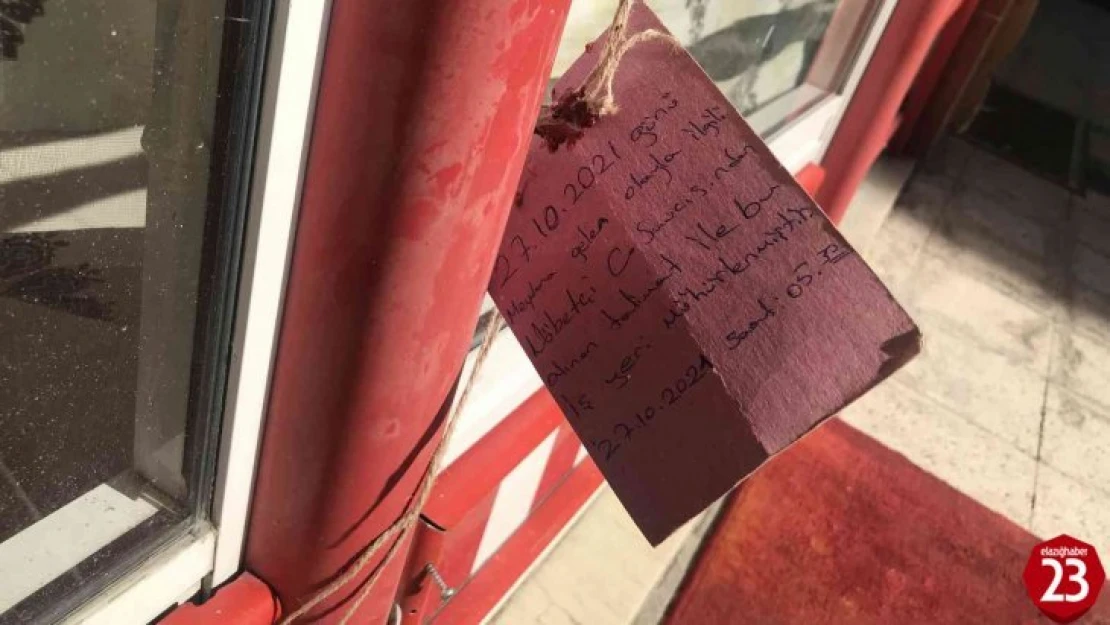 27.10.2021 günü
Meydana gelen olayla ilgili
Nöbetçi C. Savcısından
alınan talimat ile bu
İş yeri Mühürlenmiştir
27.10.2021 saat: 05.
elazığhaber
23